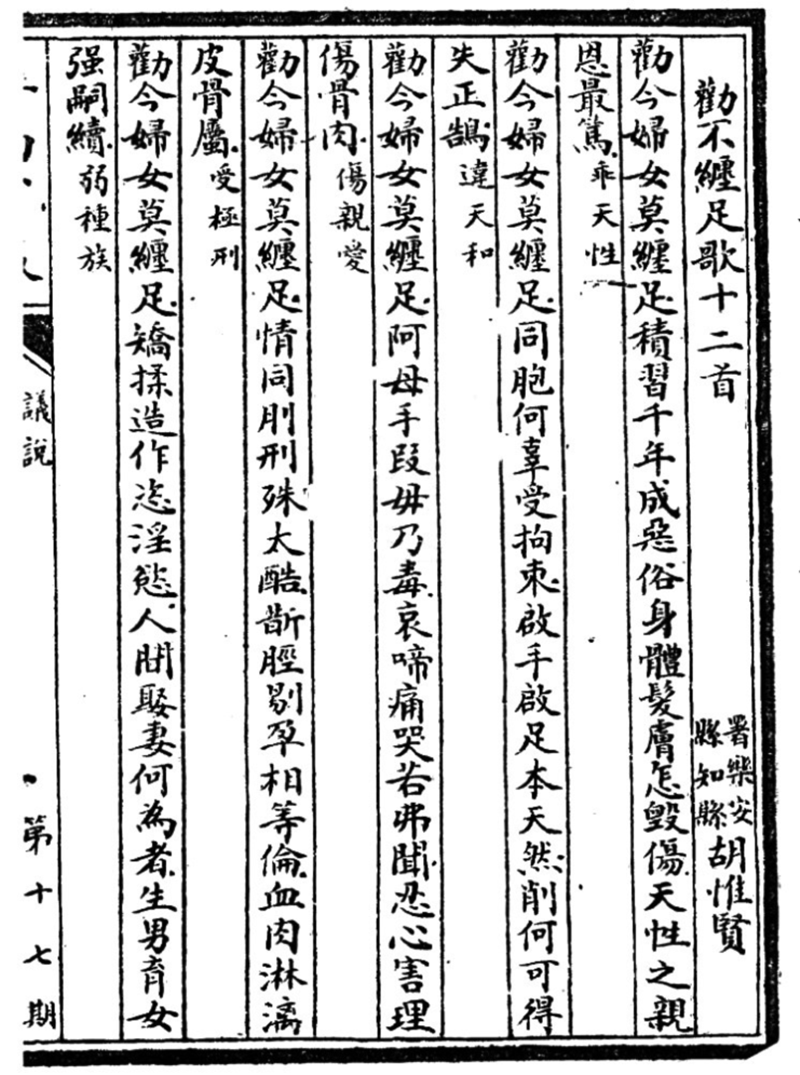 勸不纏足歌十二首
署樂安縣知縣胡惟賢
勸今婦女莫纏足積習千年成惡俗身體髮膚怎毀傷天性之親
恩最篤乖天性
勸今婦女莫纏足同胞何辜受拘束啟手啟足本天然削何可得
失正鵠違天和
勸今婦女莫纏足阿母手段毋乃毒哀啼痛哭若弗聞忍心害理
傷骨肉傷親愛
勸今婦女莫纏足情同刖刑殊太酷斮脛剔孕相等倫血肉淋漓
皮骨屬受極刑
勸今婦女莫纏足矯揉造作恣淫慾人間娶妻何為者生男育女
强嗣續弱種族
議說
第十七期